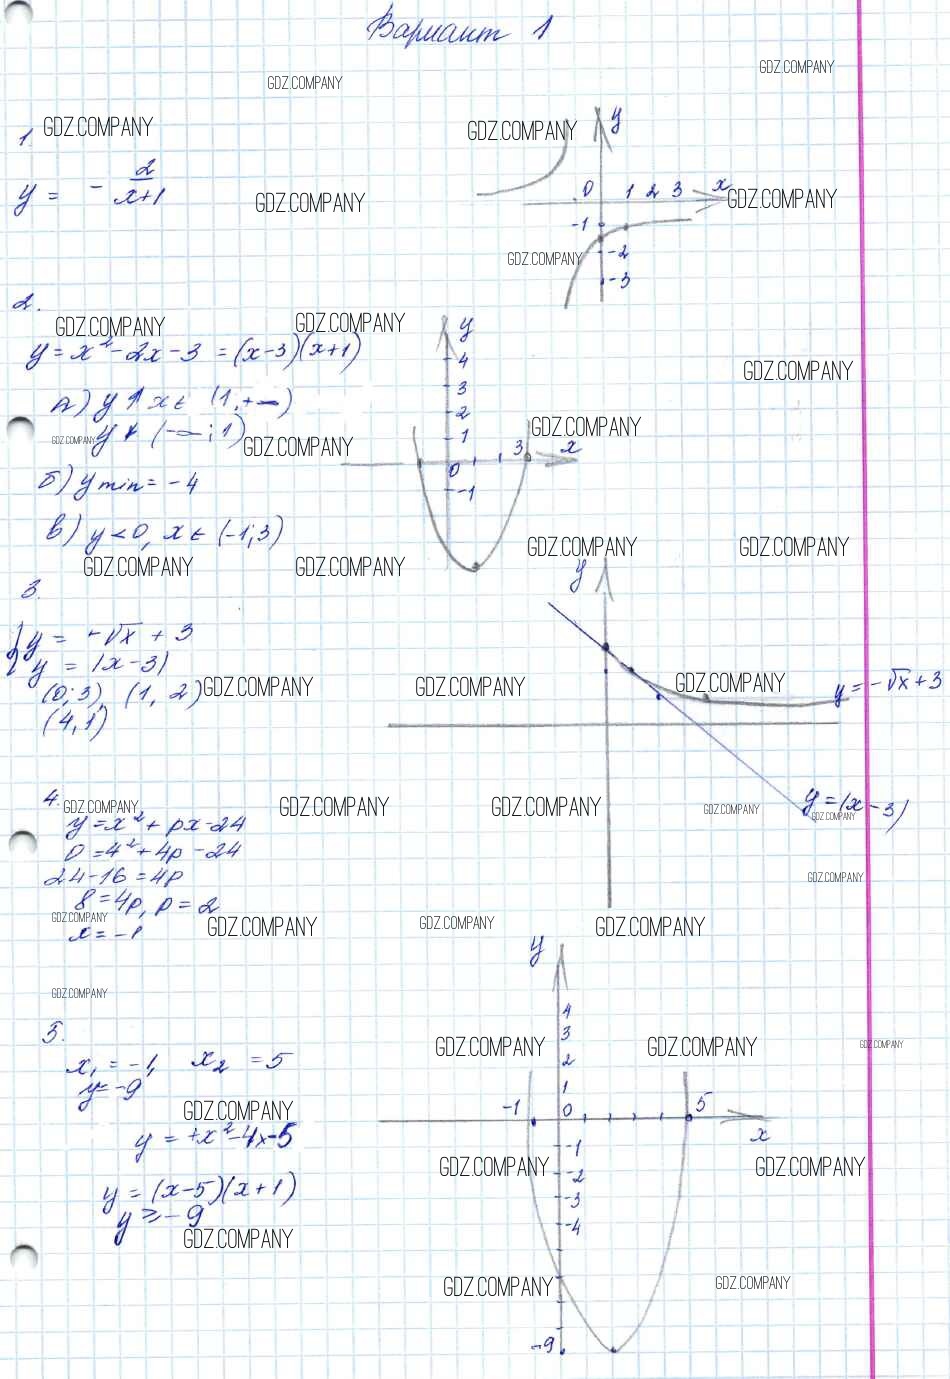 Вариант 1
GDZ.COMPANY
GDZ.COMPANY
1. GDZ.COMPANY
GDZ.COMPANY
y
y = - 2/(x+1)
GDZ.COMPANY
0 1 2 3 x
GDZ.COMPANY
-1
GDZ.COMPANY
-2
-3
2.
GDZ.COMPANY
GDZ.COMPANY
y = x² - 2x - 3 = (x-3)(x+1)
y
4
3
2
1
0
3
x
-1
GDZ.COMPANY
а) y↑ x ∈ (1, +∞)
GDZ.COMPANY
GDZ.COMPANY
y (-∞; 1)
GDZ.COMPANY
б) y min = -4
в) y < 0, x ∈ (-1; 3)
GDZ.COMPANY
GDZ.COMPANY
GDZ.COMPANY
GDZ.COMPANY
3.
y
{ y = -√x + 3
y = |x - 3|
(0; 3), (1, 2)
GDZ.COMPANY
GDZ.COMPANY
GDZ.COMPANY
y = -√x + 3
(4, 1)
y = |x - 3|
4.
GDZ.COMPANY
GDZ.COMPANY
GDZ.COMPANY
GDZ.COMPANY
GDZ.COMPANY
y = x² + px - 24
0 = 4² + 4p - 24
24 - 16 = 4p
GDZ.COMPANY
8 = 4p, p = 2
GDZ.COMPANY
x = -1
GDZ.COMPANY
GDZ.COMPANY
GDZ.COMPANY
y
GDZ.COMPANY
5.
4
3
2
1
0
-1
5
x
-1
-2
-3
-4
-9
GDZ.COMPANY
GDZ.COMPANY
GDZ.COMPANY
x₁ = -1, x₂ = 5
y = -9
GDZ.COMPANY
y = +x² - 4x - 5
GDZ.COMPANY
GDZ.COMPANY
y = (x-5)(x+1)
y ≥ -9
GDZ.COMPANY
GDZ.COMPANY
GDZ.COMPANY